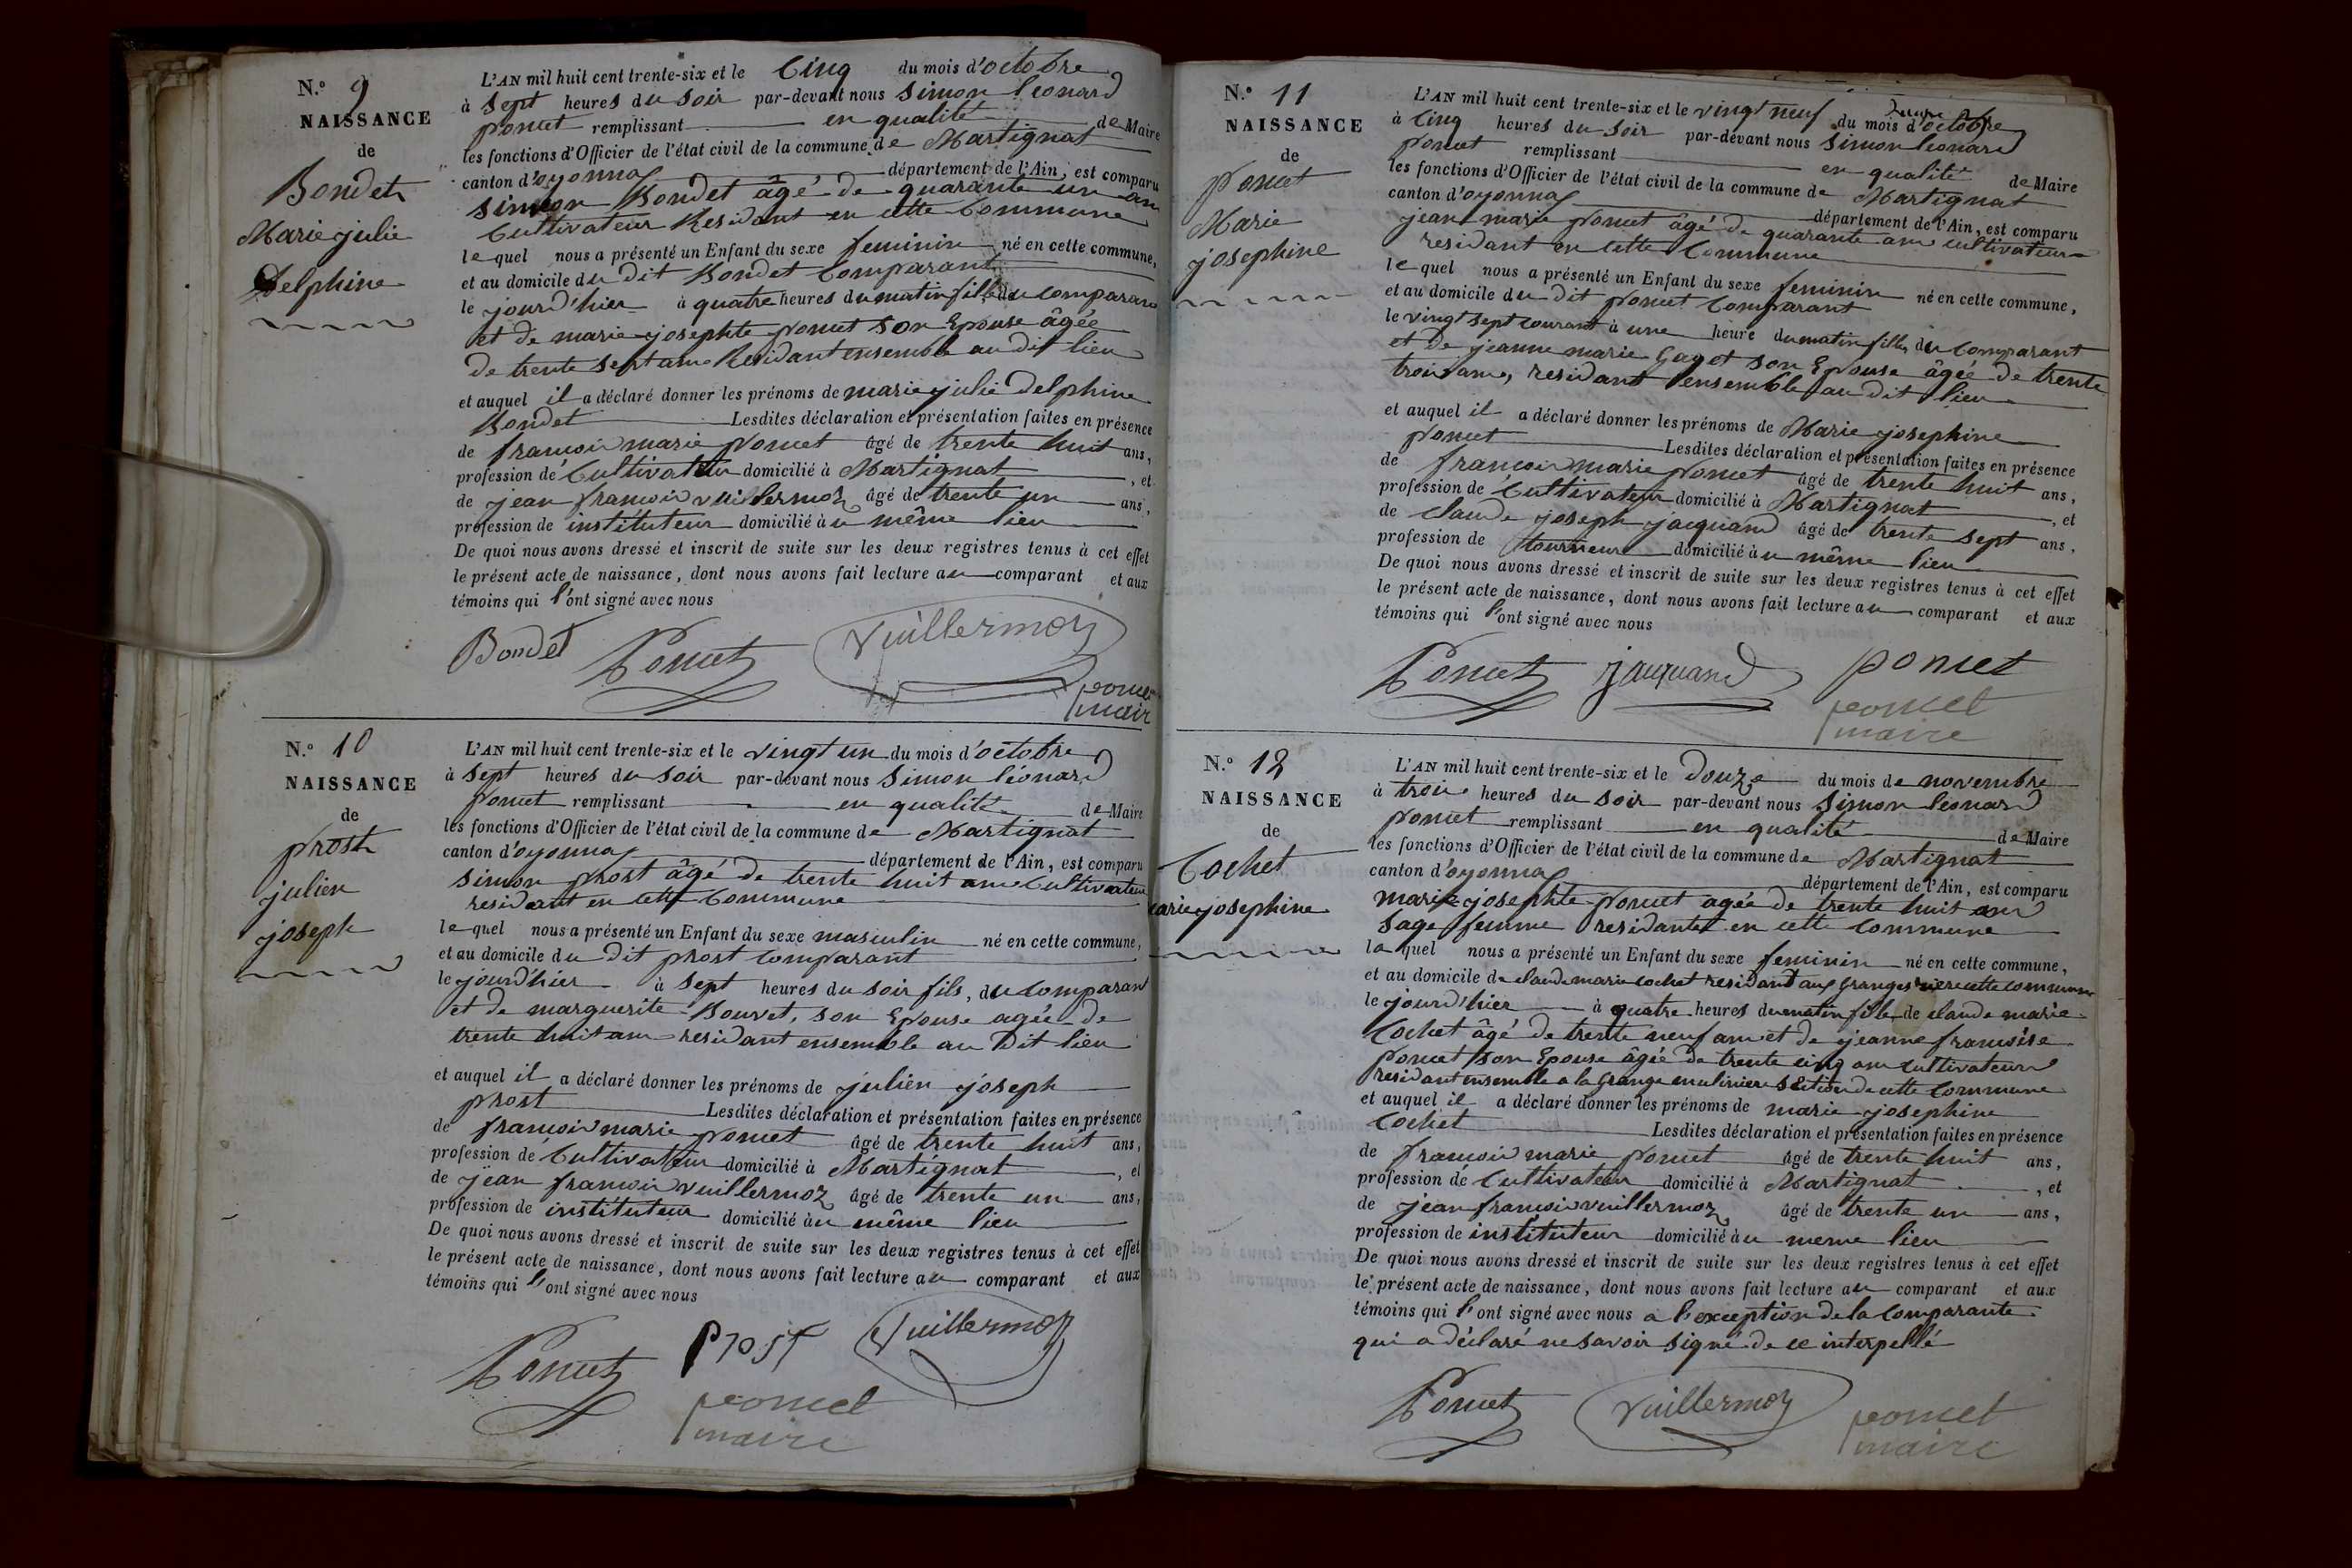 N.º 9
NAISSANCE
de
Bondet
Marie julie
Delphine
L'AN mil huit cent trente-six et le Cinq du mois d'octobre
à sept heures du soir par-devant nous simon leonard
poncet remplissant en qualité de Maire
les fonctions d'Officier de l'état civil de la commune de Martignat
canton d'oyonnax département de l'Ain, est comparu
simon Bondet âgé de quarante un an
Cultivateur Residant en cette Commune
lequel nous a présenté un Enfant du sexe feminin né en cette commune,
et au domicile du dit Bondet Comparant
le jourd'hier à quatre heures du matin fille du comparant
et de marie josephte poncet son Epouse âgée
de trente sept ans Residant ensemble au dit lieu
et auquel il a déclaré donner les prénoms de marie julie delphine
Bondet Lesdites déclaration et présentation faites en présence
de francois marie poncet âgé de trente huit ans,
profession de Cultivateur domicilié à Martignat , et
de jean francois vuillermoz âgé de trente un ans,
profession de instituteur domicilié au même lieu
De quoi nous avons dressé et inscrit de suite sur les deux registres tenus à cet effet
le présent acte de naissance, dont nous avons fait lecture au comparant et aux
témoins qui l'ont signé avec nous
Bondet Poncet Vuillermoz
poncet
maire
N.º 10
NAISSANCE
de
prost
julien
joseph
L'AN mil huit cent trente-six et le vingt un du mois d'octobre
à sept heures du soir par-devant nous simon léonard
poncet remplissant en qualité de Maire
les fonctions d'Officier de l'état civil de la commune de Martignat
canton d'oyonnax département de l'Ain, est comparu
simon prost âgé de trente huit ans Cultivateur
residant en cette Commune
lequel nous a présenté un Enfant du sexe masculin né en cette commune,
et au domicile du dit prost comparant
le jourd'hier à sept heures du soir fils, du comparant
et de marguerite Bouvet, son Epouse agée de
trente huit ans residant ensemble au Dit lieu
et auquel il a déclaré donner les prénoms de julien joseph
prost Lesdites déclaration et présentation faites en présence
de francois marie poncet âgé de trente huit ans,
profession de Cultivateur domicilié à Martignat , et
de jean francois vuillermoz âgé de trente un ans,
profession de instituteur domicilié au même lieu
De quoi nous avons dressé et inscrit de suite sur les deux registres tenus à cet effet
le présent acte de naissance, dont nous avons fait lecture au comparant et aux
témoins qui l'ont signé avec nous
Poncet prost Vuillermoz
poncet
maire
N.º 11
NAISSANCE
de
poncet
Marie
josephine
L'AN mil huit cent trente-six et le vingt neuf du mois d'octobre
à Cinq heures du soir par-devant nous simon leonard
poncet remplissant en qualité de Maire
les fonctions d'Officier de l'état civil de la commune de Martignat
canton d'oyonnax département de l'Ain, est comparu
jean marie poncet âgé de quarante ans cultivateur
residant en cette Commune
lequel nous a présenté un Enfant du sexe feminin né en cette commune,
et au domicile du dit poncet Comparant
le vingt sept courant à une heure du matin fille, du comparant
et de jeanne marie Gagot son Epouse âgée de trente
trois ans, residant ensemble au dit lieu
et auquel il a déclaré donner les prénoms de Marie josephine
poncet Lesdites déclaration et présentation faites en présence
de francois marie poncet âgé de trente huit ans,
profession de Cultivateur domicilié à Martignat , et
de claude joseph jacquand âgé de trente sept ans,
profession de tourneur domicilié au même lieu
De quoi nous avons dressé et inscrit de suite sur les deux registres tenus à cet effet
le présent acte de naissance, dont nous avons fait lecture au comparant et aux
témoins qui l'ont signé avec nous
Poncet jacquand poncet
poncet
maire
N.º 12
NAISSANCE
de
Cochet
marie josephine
L'AN mil huit cent trente-six et le Douze du mois de novembre
à trois heures du soir par-devant nous simon léonard
poncet remplissant en qualité de Maire
les fonctions d'Officier de l'état civil de la commune de Martignat
canton d'oyonnax département de l'Ain, est comparu
marie josephte poncet agée de trente huit ans
sage femme residante en cette commune
laquel nous a présenté un Enfant du sexe feminin né en cette commune,
et au domicile de claude marie cochet residant aux Granges riere cette commune
le jourd'hier à quatre heures du matin fille de claude marie
Cochet âgé de trente neuf ans et de jeanne francoise
poncet son Epouse âgée de trente cinq ans cultivateurs
residant ensemble a la Grange section de cette Commune
et auquel il a déclaré donner les prénoms de marie josephine
Cochet Lesdites déclaration et présentation faites en présence
de francois marie poncet âgé de trente huit ans,
profession de Cultivateur domicilié à Martignat , et
de jean francois vuillermoz âgé de trente un ans,
profession de instituteur domicilié au meme lieu
De quoi nous avons dressé et inscrit de suite sur les deux registres tenus à cet effet
le présent acte de naissance, dont nous avons fait lecture au comparant et aux
témoins qui l'ont signé avec nous a l'exception de la comparante
qui a déclaré ne savoir signé de ce interpellé
Poncet Vuillermoz poncet
maire